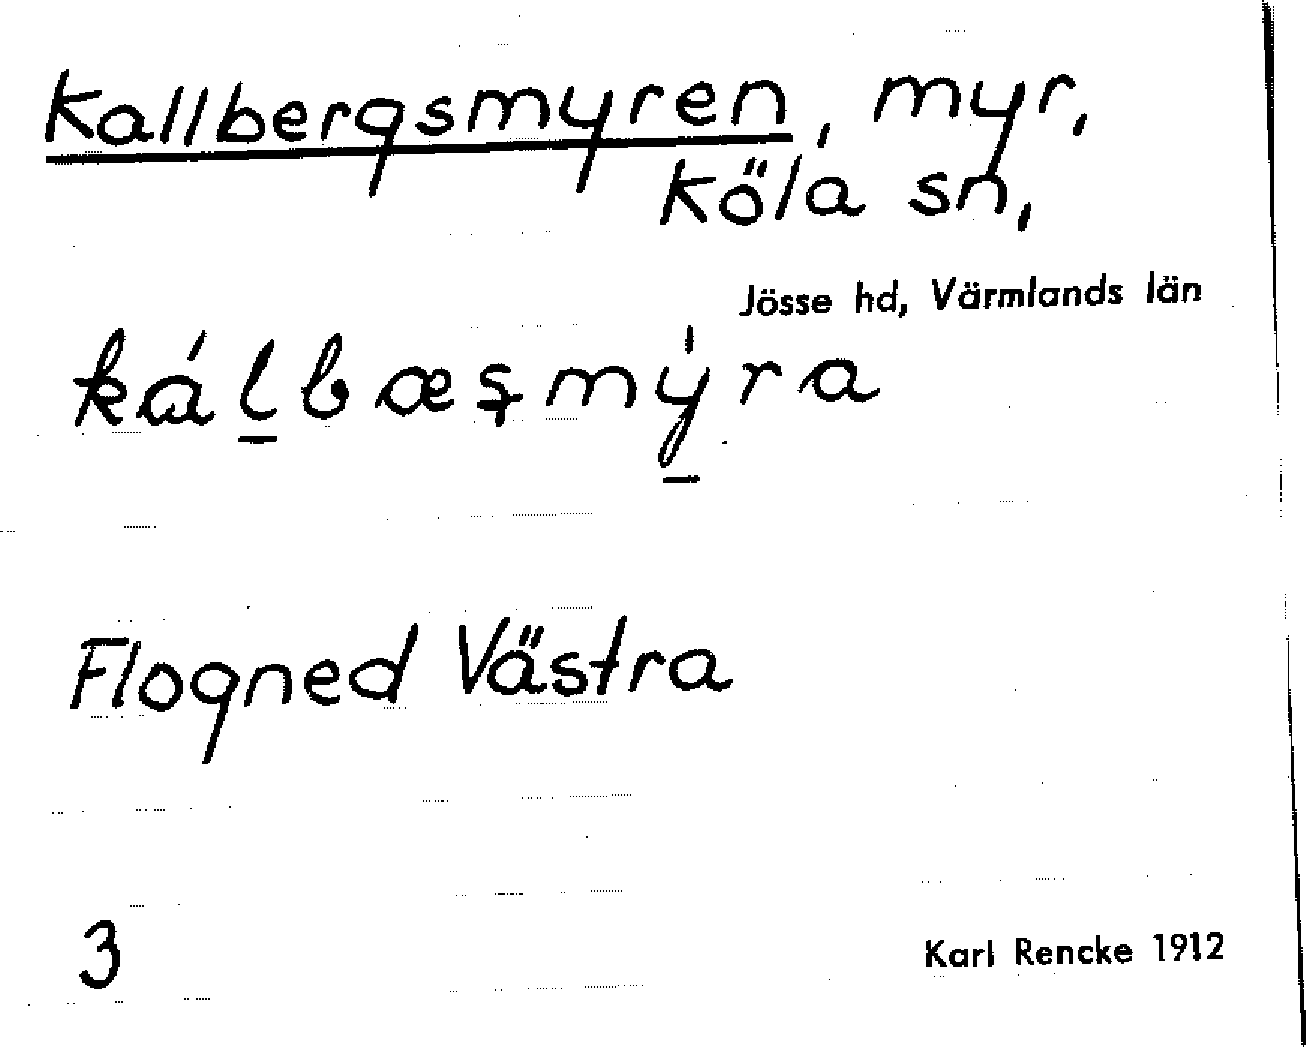 Kallbergsmyren, myr,
Köla sn,
Jösse hd, Värmlands län
kál̠bæşmý̠ra
Flogned Västra
3
Karl Rencke 1912